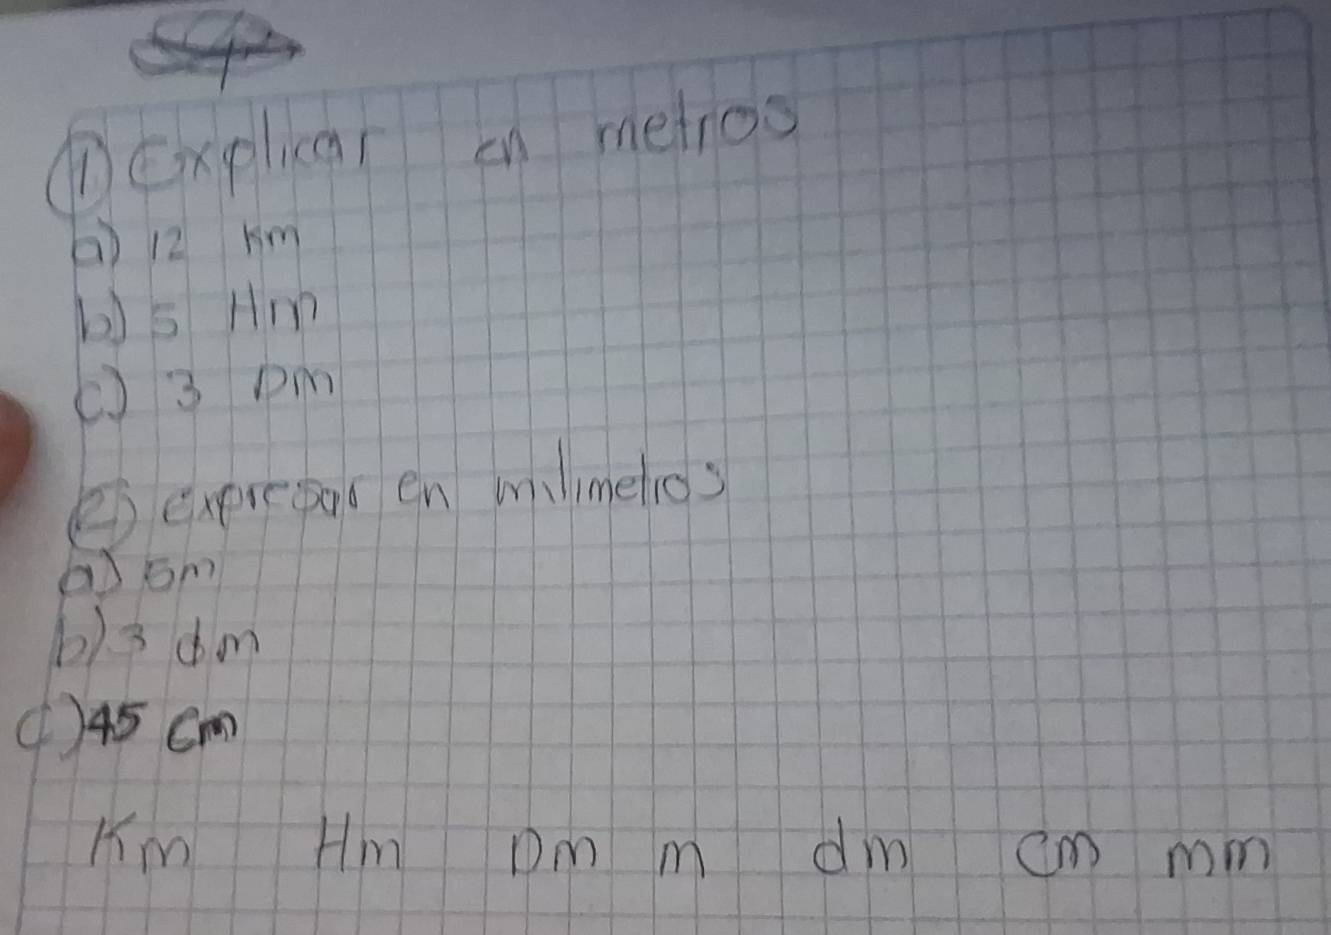 ① Explicar en metros
a) 12 Km
b) 5 Hm
c) 3 Dm
② expresar en milimetros
a) 5m
b) 3 dm
c) 45 cm
Km Hm Dm m dm cm mm